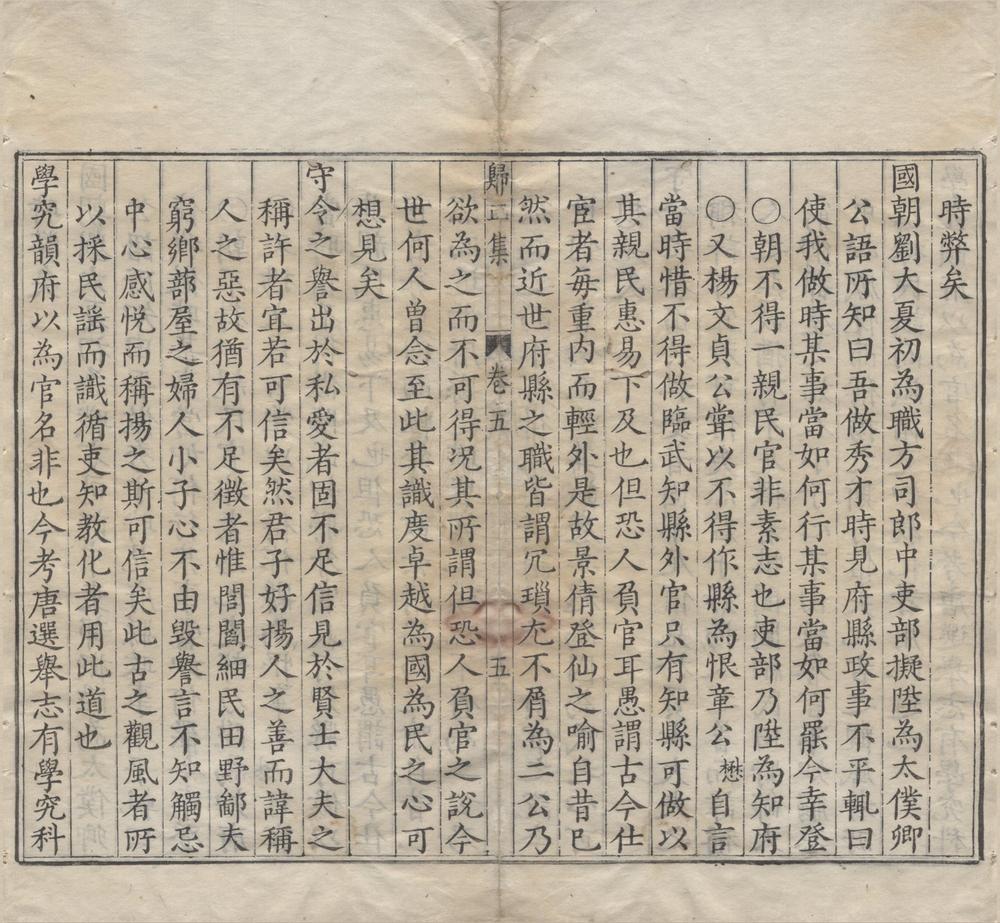 時弊矣
國朝劉大夏初為職方司郎中吏部擬陞為太僕卿
公語所知曰吾做秀才時見府縣政事不平輒曰
使我做時某事當如何行某事當如何罷今幸登
〇朝不得一親民官非素志也吏部乃陞為知府
〇又楊文貞公甞以不得作縣為恨章公懋自言
當時惜不得做臨武知縣外官只有知縣可做以
其親民惠易下及也但恐人負官耳愚謂古今仕
宦者每重内而輕外是故景倩登仙之喻自昔已
然而近世府縣之職皆謂冗瑣尤不屑為二公乃
歸正集
卷五
五
欲為之而不可得况其所謂但恐人負官之說今
世何人曾念至此其識度卓越為國為民之心可
想見矣
守令之譽出於私愛者固不足信見於賢士大夫之
稱許者宜若可信矣然君子好揚人之善而諱稱
人之惡故猶有不足徵者惟閭閻細民田野鄙夫
窮鄉蔀屋之婦人小子心不由毀譽言不知觸忌
中心感悅而稱揚之斯可信矣此古之觀風者所
以採民謡而識循吏知教化者用此道也
學究韻府以為官名非也今考唐選舉志有學究科